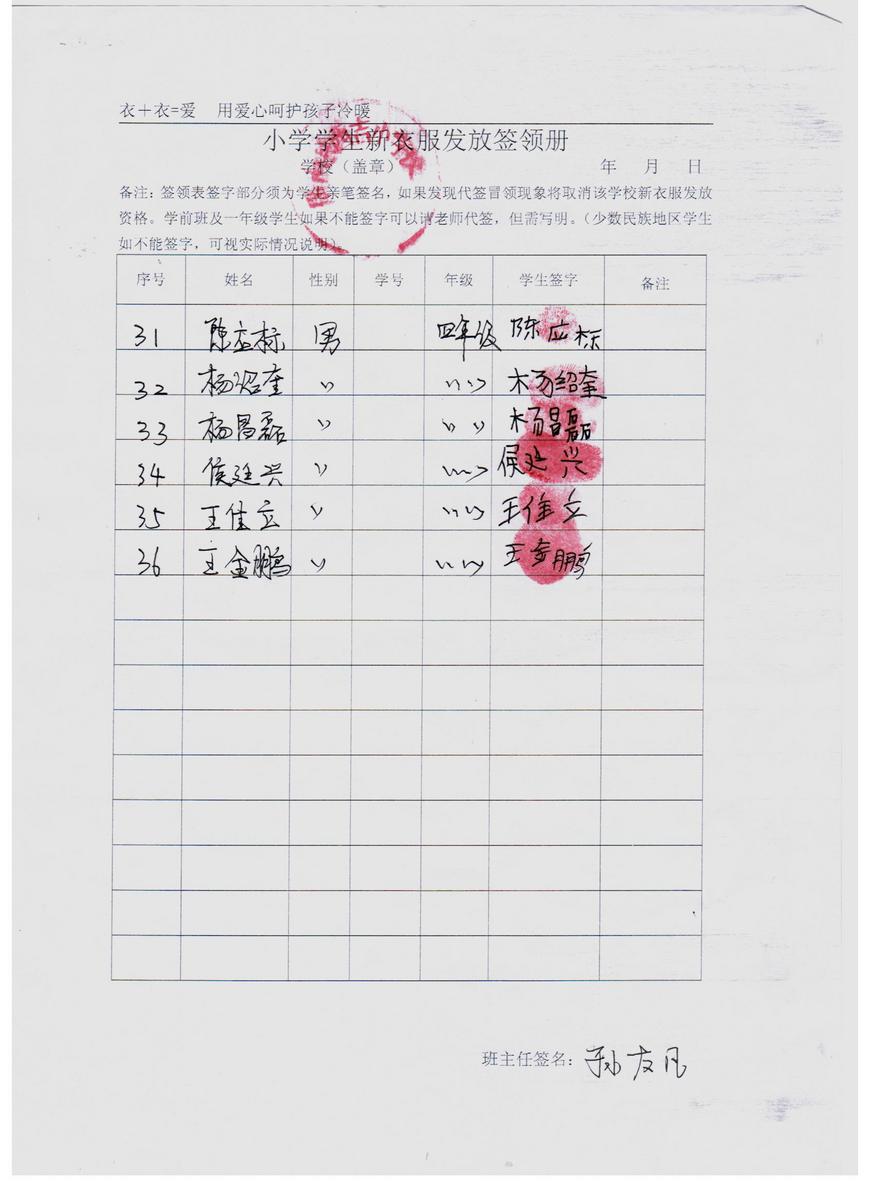 衣+衣=爱 用爱心呵护孩子冷暖
小学学生新衣服发放签领册
学校（盖章） 年 月 日
备注：签领表签字部分须为学生亲笔签名，如果发现代签冒领现象将取消该学校新衣服发放
资格。学前班及一年级学生如果不能签字可以请老师代签，但需写明。（少数民族地区学生
如不能签字，可视实际情况说明）。
序号 姓名 性别 学号 年级 学生签字 备注
31 陈应标 男 四年级 陈应标
32 杨绍奎 〃 〃〃 杨绍奎
33 杨昌磊 〃 〃〃 杨昌磊
34 侯廷兴 〃 〃〃 侯廷兴
35 王佳立 〃 〃〃 王佳立
36 王金鹏 〃 〃〃 王金鹏
班主任签名：孙友凡